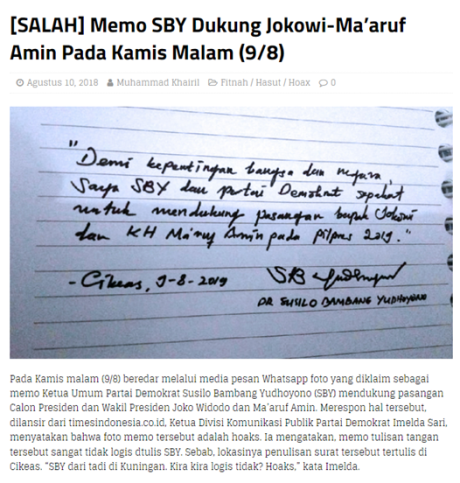 [SALAH] Memo SBY Dukung Jokowi-Ma’aruf
Amin Pada Kamis Malam (9/8)
Agustus 10, 2018 Muhammad Khairil Fitnah / Hasut / Hoax 0
"Demi kepentingan bangsa dan negara,
Saya SBY dan partai Demokrat sepakat
untuk mendukung pasangan bapak Jokowi
dan KH Ma'ruf Amin pada pilpres 2019."
- Cikeas, 9-8-2019 SBYudhoyono
DR SUSILO BAMBANG YUDHOYONO
Pada Kamis malam (9/8) beredar melalui media pesan Whatsapp foto yang diklaim sebagai
memo Ketua Umum Partai Demokrat Susilo Bambang Yudhoyono (SBY) mendukung pasangan
Calon Presiden dan Wakil Presiden Joko Widodo dan Ma’aruf Amin. Merespon hal tersebut,
dilansir dari timesindonesia.co.id, Ketua Divisi Komunikasi Publik Partai Demokrat Imelda Sari,
menyatakan bahwa foto memo tersebut adalah hoaks. Ia mengatakan, memo tulisan tangan
tersebut sangat tidak logis dtulis SBY. Sebab, lokasinya penulisan surat tersebut tertulis di
Cikeas. “SBY dari tadi di Kuningan. Kira kira logis tidak? Hoaks,” kata Imelda.